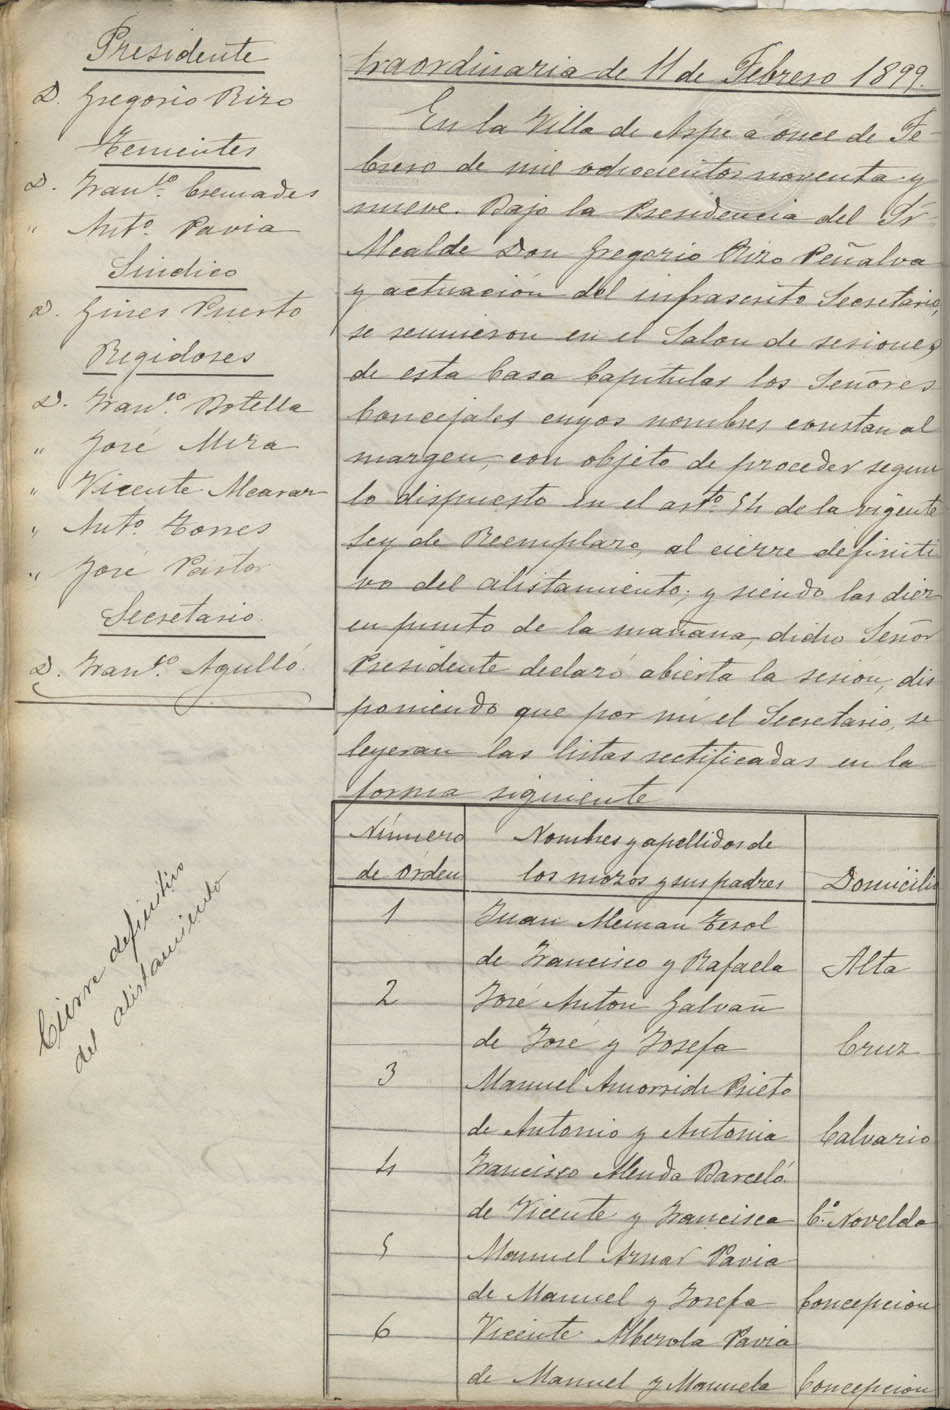 Presidente
D. Gregorio Rizo
Tenientes
D. Fran.co Cremades
" Ant.o Pavia
Sindico
D. Gines Puerto
Regidores
D. Fran.co Botella
" José Mira
" Vicente Alcaraz
" Ant.o Torres
" José Pastor
Secretario.
D. Fran.co Agulló.
Cierre definitivo
del alistamiento
traordinaria de 11 de Febrero 1899.
En la Villa de Aspe a once de Fe-
brero de mil ochocientos noventa y
nueve. Bajo la Presidencia del Sr
Alcalde Don Gregorio Rizo Peñalva
y actuación del infrascrito Secretario,
se reunieron en el Salon de sesiones
de esta Casa Capitular los Señores
Concejales cuyos nombres constan al
margen, con objeto de proceder segun
lo dispuesto en el art.o 54 de la vigente
Ley de Reemplazo, al cierre definiti
vo del alistamiento; y siendo las diez
en punto de la mañana, dicho Señor
Presidente declaró abierta la sesion, dis
poniendo que por mi el Secretario, se
leyeran las listas rectificadas en la
forma siguiente
Número de órden
Nombres y apellidos de los mozos y sus padres
Domicilio
1 Juan Aleman Terol
de Francisco y Rafaela Alta
2 José Anton Galvañ
de José y Josefa Cruz
3 Manuel Amorside Prieto
de Antonio y Antonia Calvario
4 Francisco Alenda Barceló.
de Vicente y Francisca C.o Novelda
5 Manuel Aznar Pavia
de Manuel y Josefa Concepcion
6 Vicente Alberola Pavia
de Manuel y Manuela Concepcion